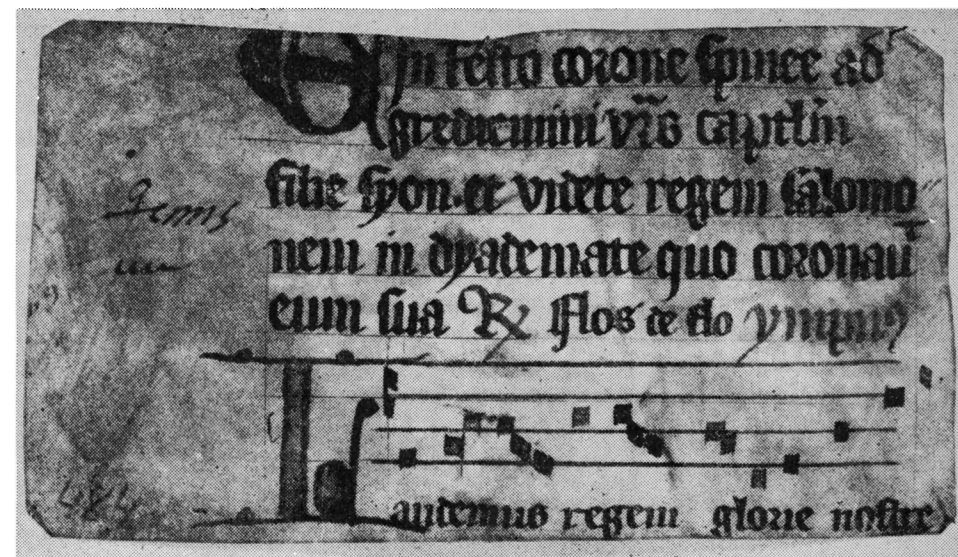 In festo corone spinee ad
Egredimini vr̃s Capitlm̃
filie syon et videte regem salomo
nem in dyademate quo coronauit
eum sua ℟ Flos de flo ympnus
Laudemus regem glorie nostre